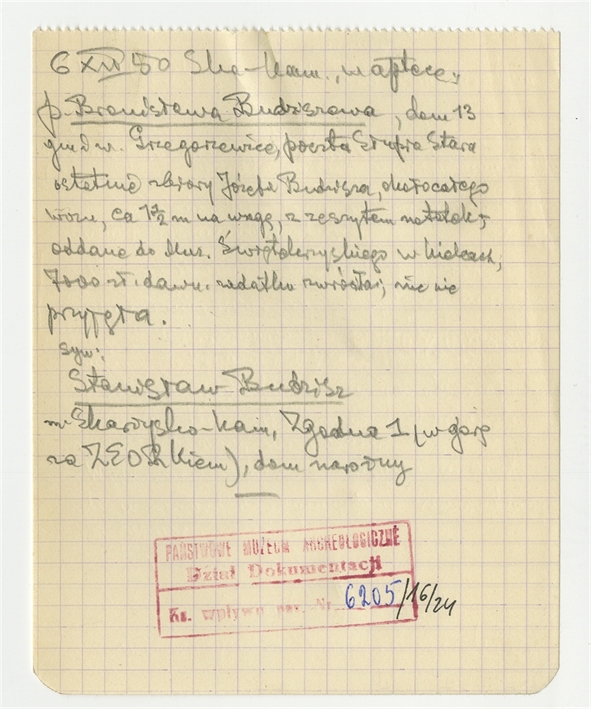 6 XII 50 Ska-Kam., w aptece,
p. Bronisława Budziszowa, dom 13
gm. i w. Grzegorzewice, poczta Słupia Stara
ostatnie zbiory Józefa Budzisza, około całego
wozu, ca 1 1/2 m na wagę, z zeszytem notatek,
oddane do Muz. Świętokrzyskiego w Kielcach,
7000 zł. dawn. zadatku zwróciłaś, nic nie
przyjęła.
syn:
Stanisław Budzisz
w Skarżysko-Kam, Zgodna 1 (w górę
za ZEORKiem), dom narożny
PAŃSTWOWE MUZEUM ARCHEOLOGICZNE
Dział Dokumentacji
Ks. wpływu Nr. 6205/16/24